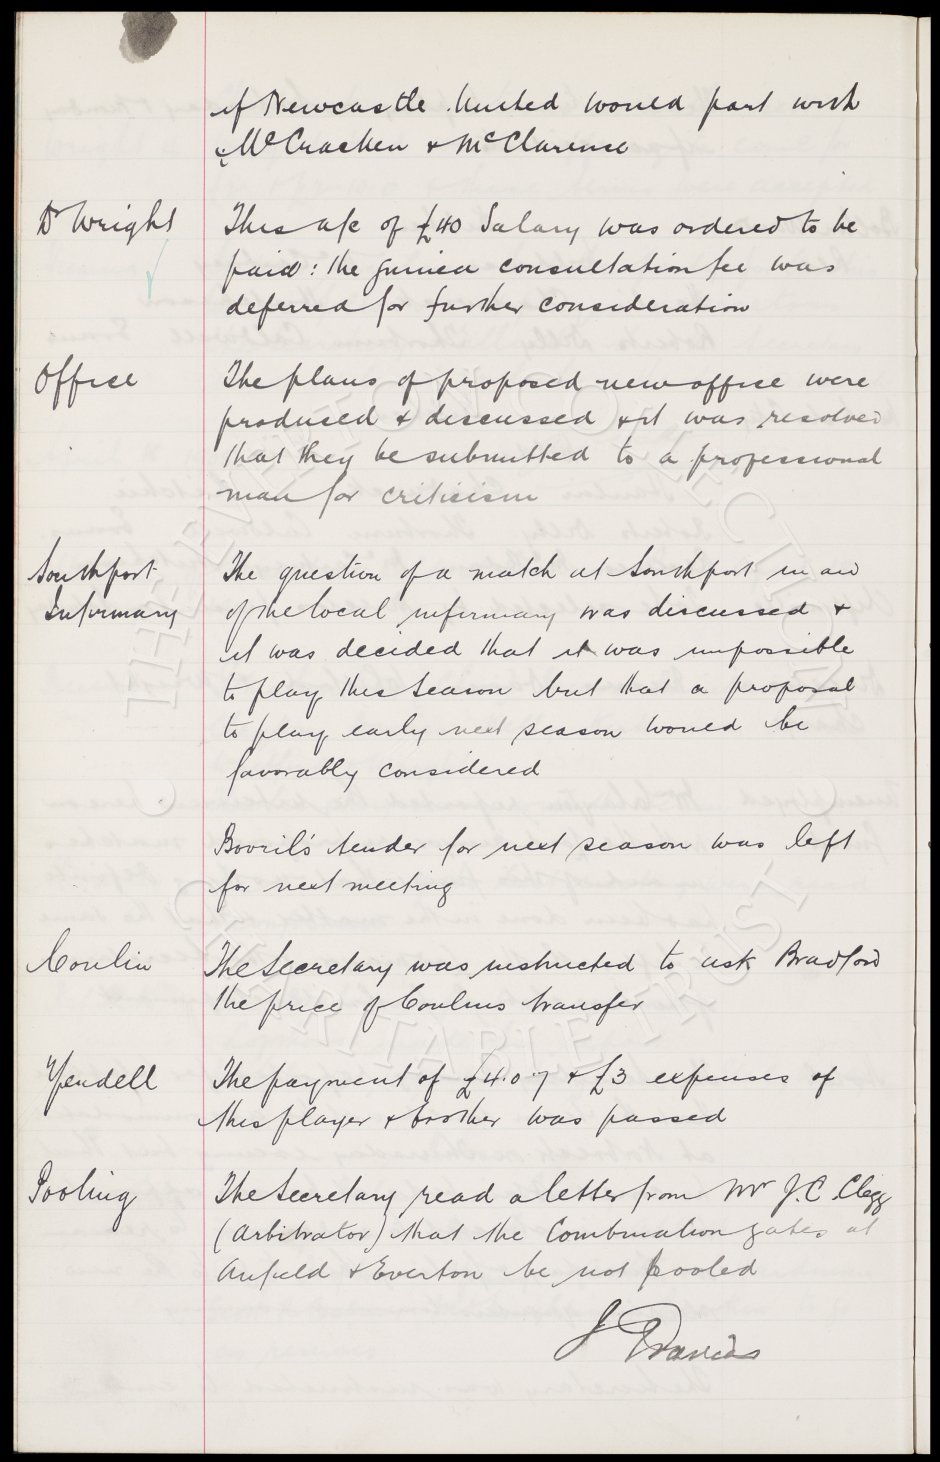 if Newcastle United would part with
McCracken & McClarence
Dr Wright
This a/c of £40 Salary was ordered to be
paid: the guinea consultation fee was
deferred for further consideration
Office
The plans of proposed new office were
produced & discussed & it was resolved
that they be submitted to a professional
man for criticism
Southport
Infirmary
The question of a match at Southport in aid
of the local infirmary was discussed &
it was decided that it was impossible
to play this season but that a proposal
to play early next season would be
favorably considered
Bovril's tender for next season was left
for next meeting
Conlin
The Secretary was instructed to ask Bradford
the price of Conlins transfer
Yendell
The payment of £4.0.7 & £3 expenses of
this player & brother was passed
Pooling
The Secretary read a letter from Mr J.C. Clegg
(Arbitrator) that the Combination gates at
Anfield & Everton be not pooled
J Davies
THE EVERTON COLLECTION
CHARITABLE TRUST